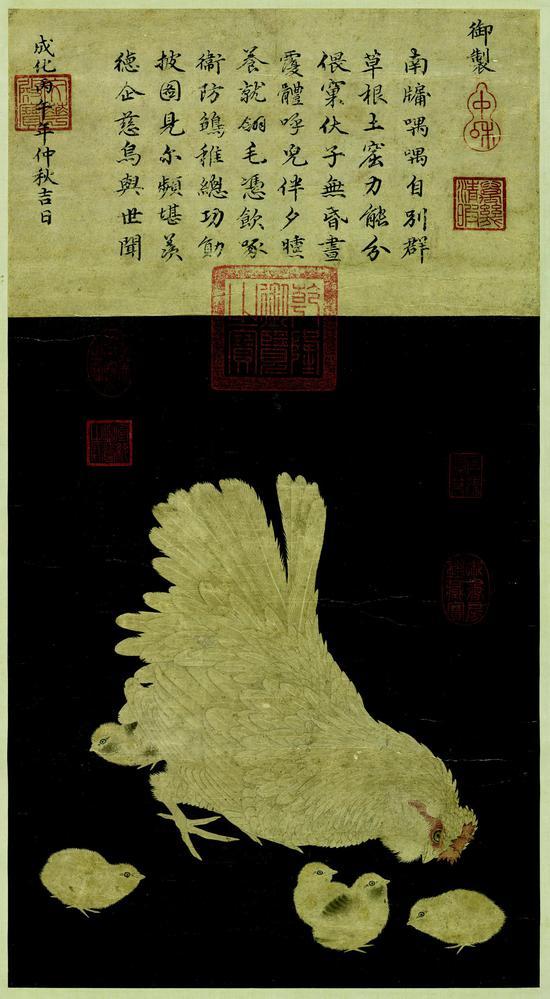 御製
南牖喁喁自別群
草根土窟力能分
偎窠伏子無昏晝
覆體呼兒伴夕曛
養就翎毛憑飲啄
衛防鶵稚總功勳
披圖見爾頻堪羨
德企慈烏與世聞
成化丙午年仲秋吉日
乾隆御覽之寶